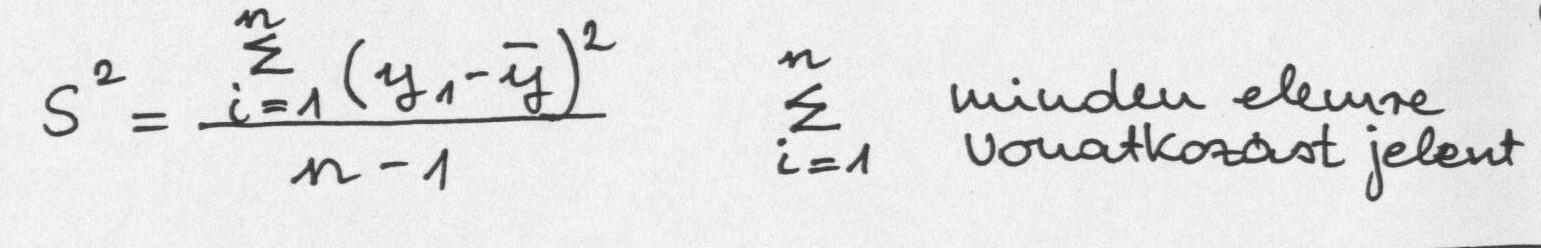 S² = \frac{\sum_{i=1}^{n} (y_1 - \bar{y})^2}{n-1}
\sum_{i=1}^{n} minden elemre
vonatkozást jelent